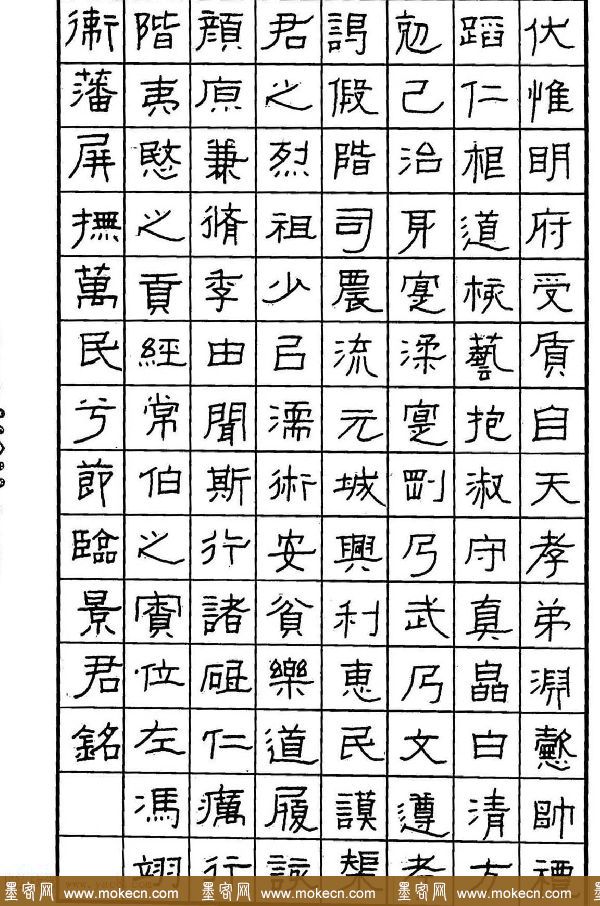 伏惟明府受質自天孝弟淵懿帥禮
蹈仁根道核藝抱淑守真皛白清方
剋己治身寔柔寔剛乃武乃文遵考
謁假階司農流元城興利惠民謨
君之烈祖少㠯濡術安貧樂道履該
顏原兼脩季由聞斯行諸砥仁癘行
階夷愍之貢經常伯之寮位左馮翊
衛藩屏撫萬民兮節臨景君銘
墨客网 www.mokecn.com 墨客网 www.mokecn.com 墨客网 www.mokecn.com